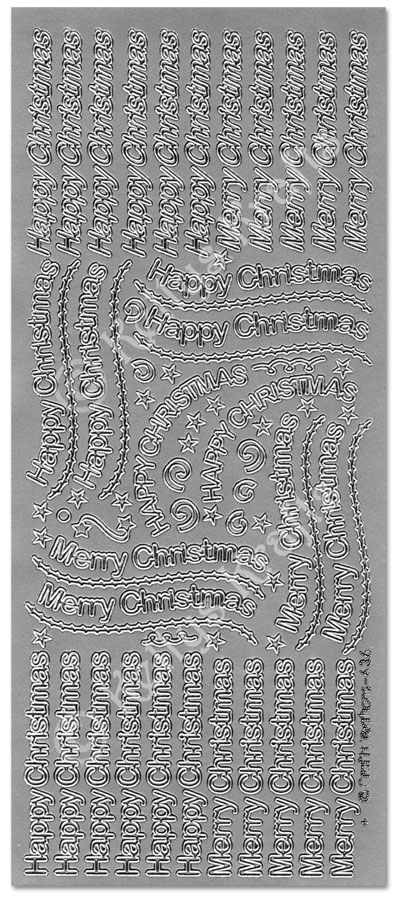 Happy Christmas
Happy Christmas
Happy Christmas
Happy Christmas
Happy Christmas
Happy Christmas
Merry Christmas
Merry Christmas
Merry Christmas
Merry Christmas
Merry Christmas
Happy Christmas
Happy Christmas
Happy Christmas
Happy Christmas
HAPPY CHRISTMAS
HAPPY CHRISTMAS
Merry Christmas
Merry Christmas
Merry Christmas
Merry Christmas
Happy Christmas
Happy Christmas
Happy Christmas
Happy Christmas
Happy Christmas
Happy Christmas
Merry Christmas
Merry Christmas
Merry Christmas
Merry Christmas
Merry Christmas
© Kellys Krafts
© Kellys Krafts